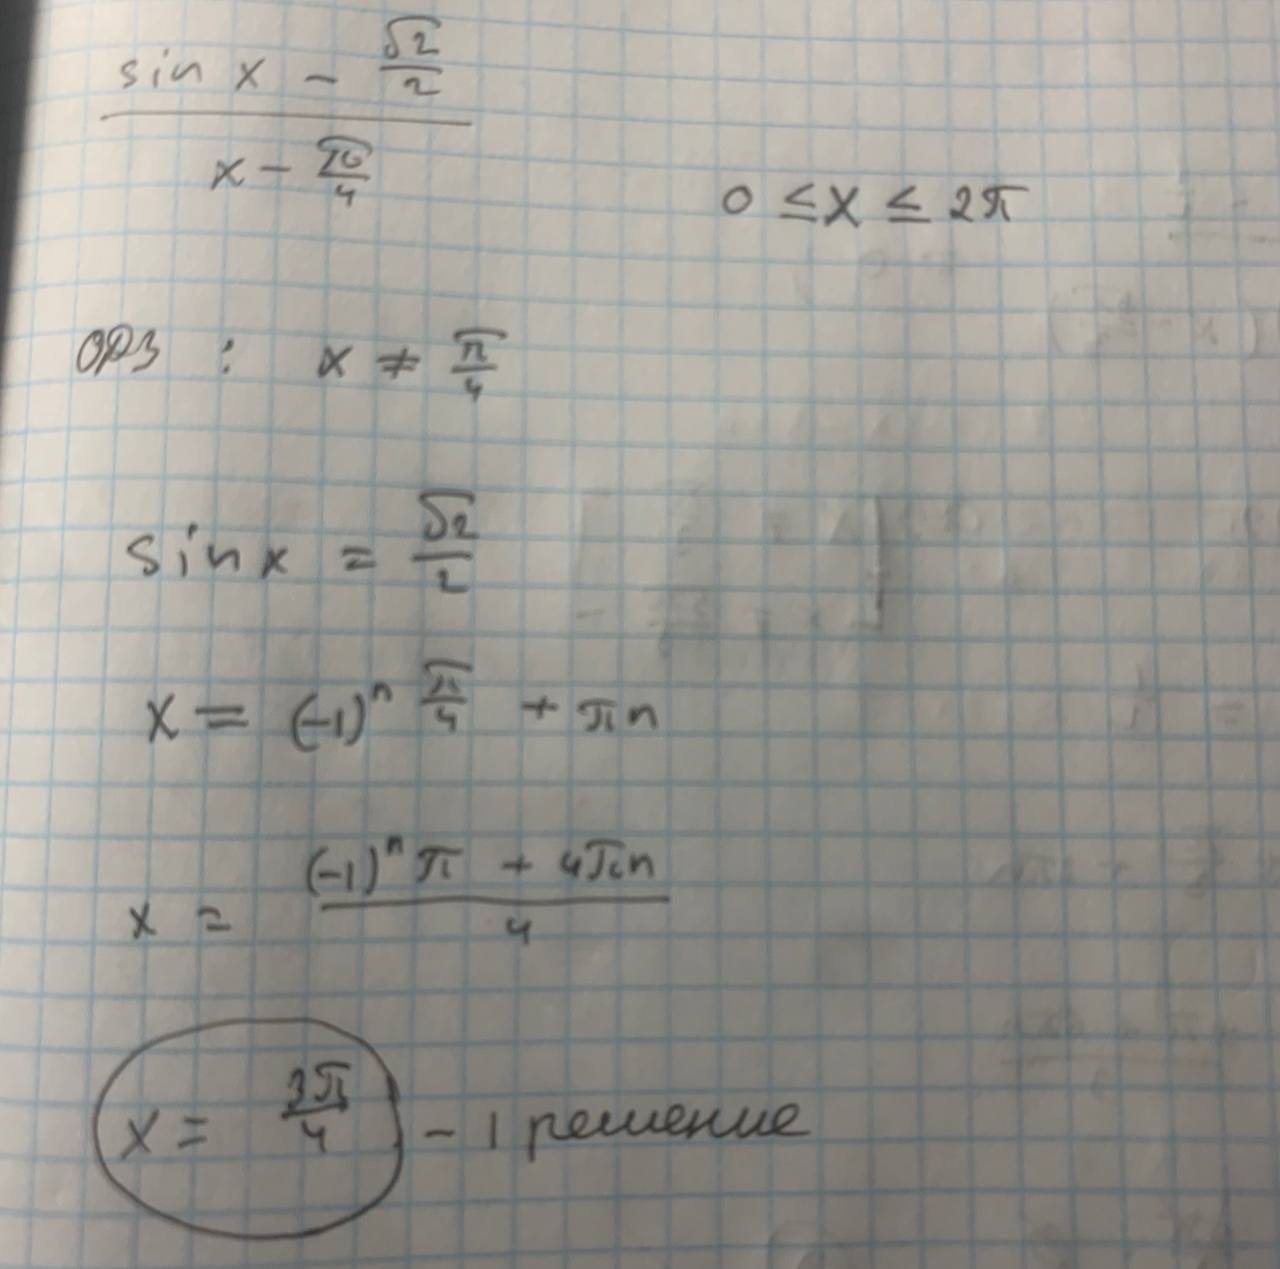 sin x - √2/2
x - π/4
0 ≤ x ≤ 2π
ОДЗ : x ≠ π/4
sin x = √2/2
x = (-1)ⁿ π/4 + πn
x = (-1)ⁿ π + 4πn / 4
x = 3π/4 - 1 решение